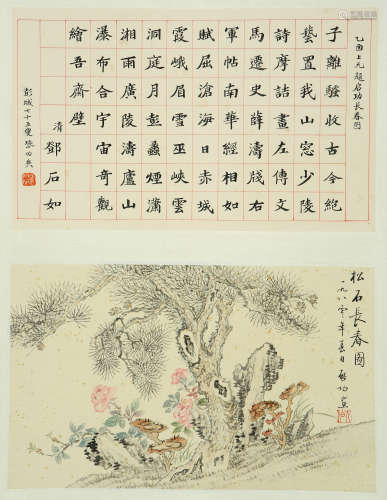 乙酉上元題启功長春圖
子離騷收古今絕
藝置我山窓少陵
詩摩詰畫左傳文
馬遷史薛濤牋右
軍帖南華經相如
賦屈滄海日赤城
霞峨眉雪巫峽雲
洞庭月彭蠡煙瀟
湘雨廣陵濤廬山
瀑布合宇宙奇觀
繪吾齋壁
清鄧石如
彭城七十五叟張
松石長春圖
一九八〇年春日启功